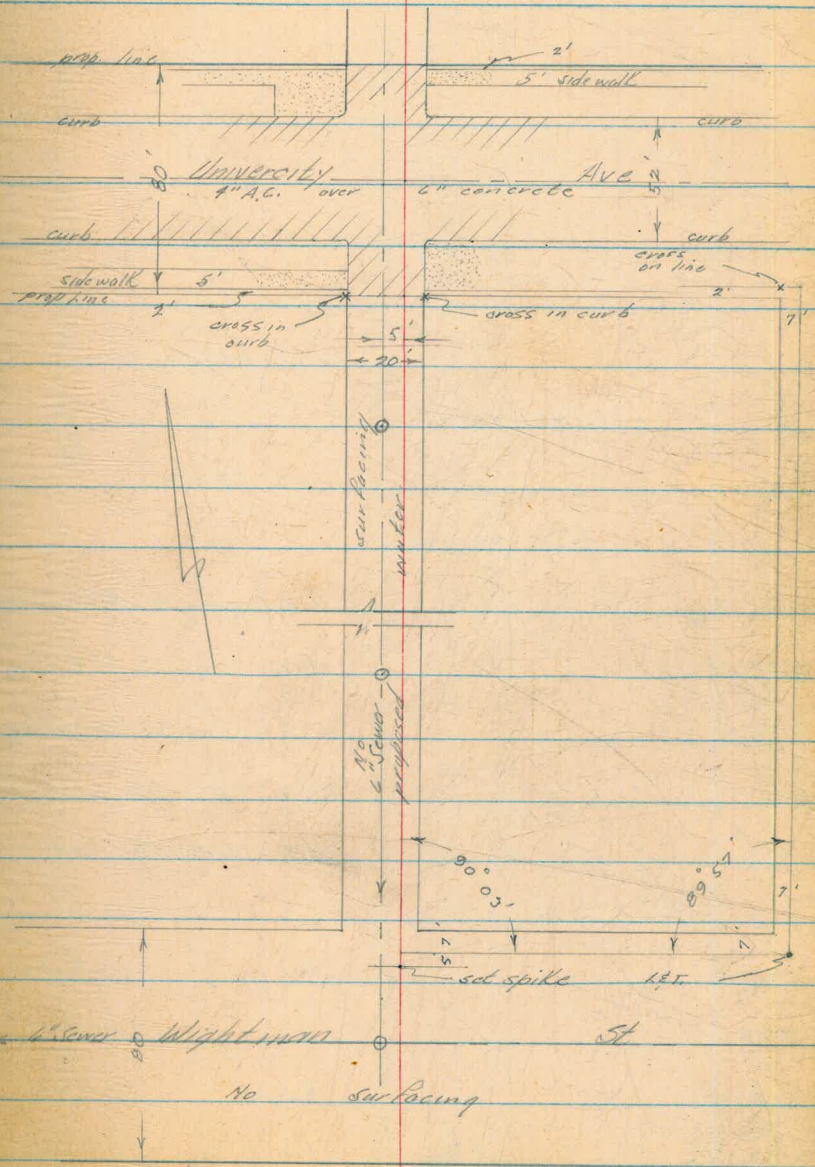 prop. line
2'
5' sidewalk
curb
curb
80'
Univercity Ave
52'
4" A.C. over 6" concrete
curb
curb
cross on line
sidewalk 5'
prop line
2'
2'
7'
cross in curb
cross in curb
5'
20'
No surfacing
6" Sewer
proposed water
90° 03'
89° 57'
7'
7'
7'
5'
set spike
L&T.
6" Sewer
80
Wightman St
No surfacing